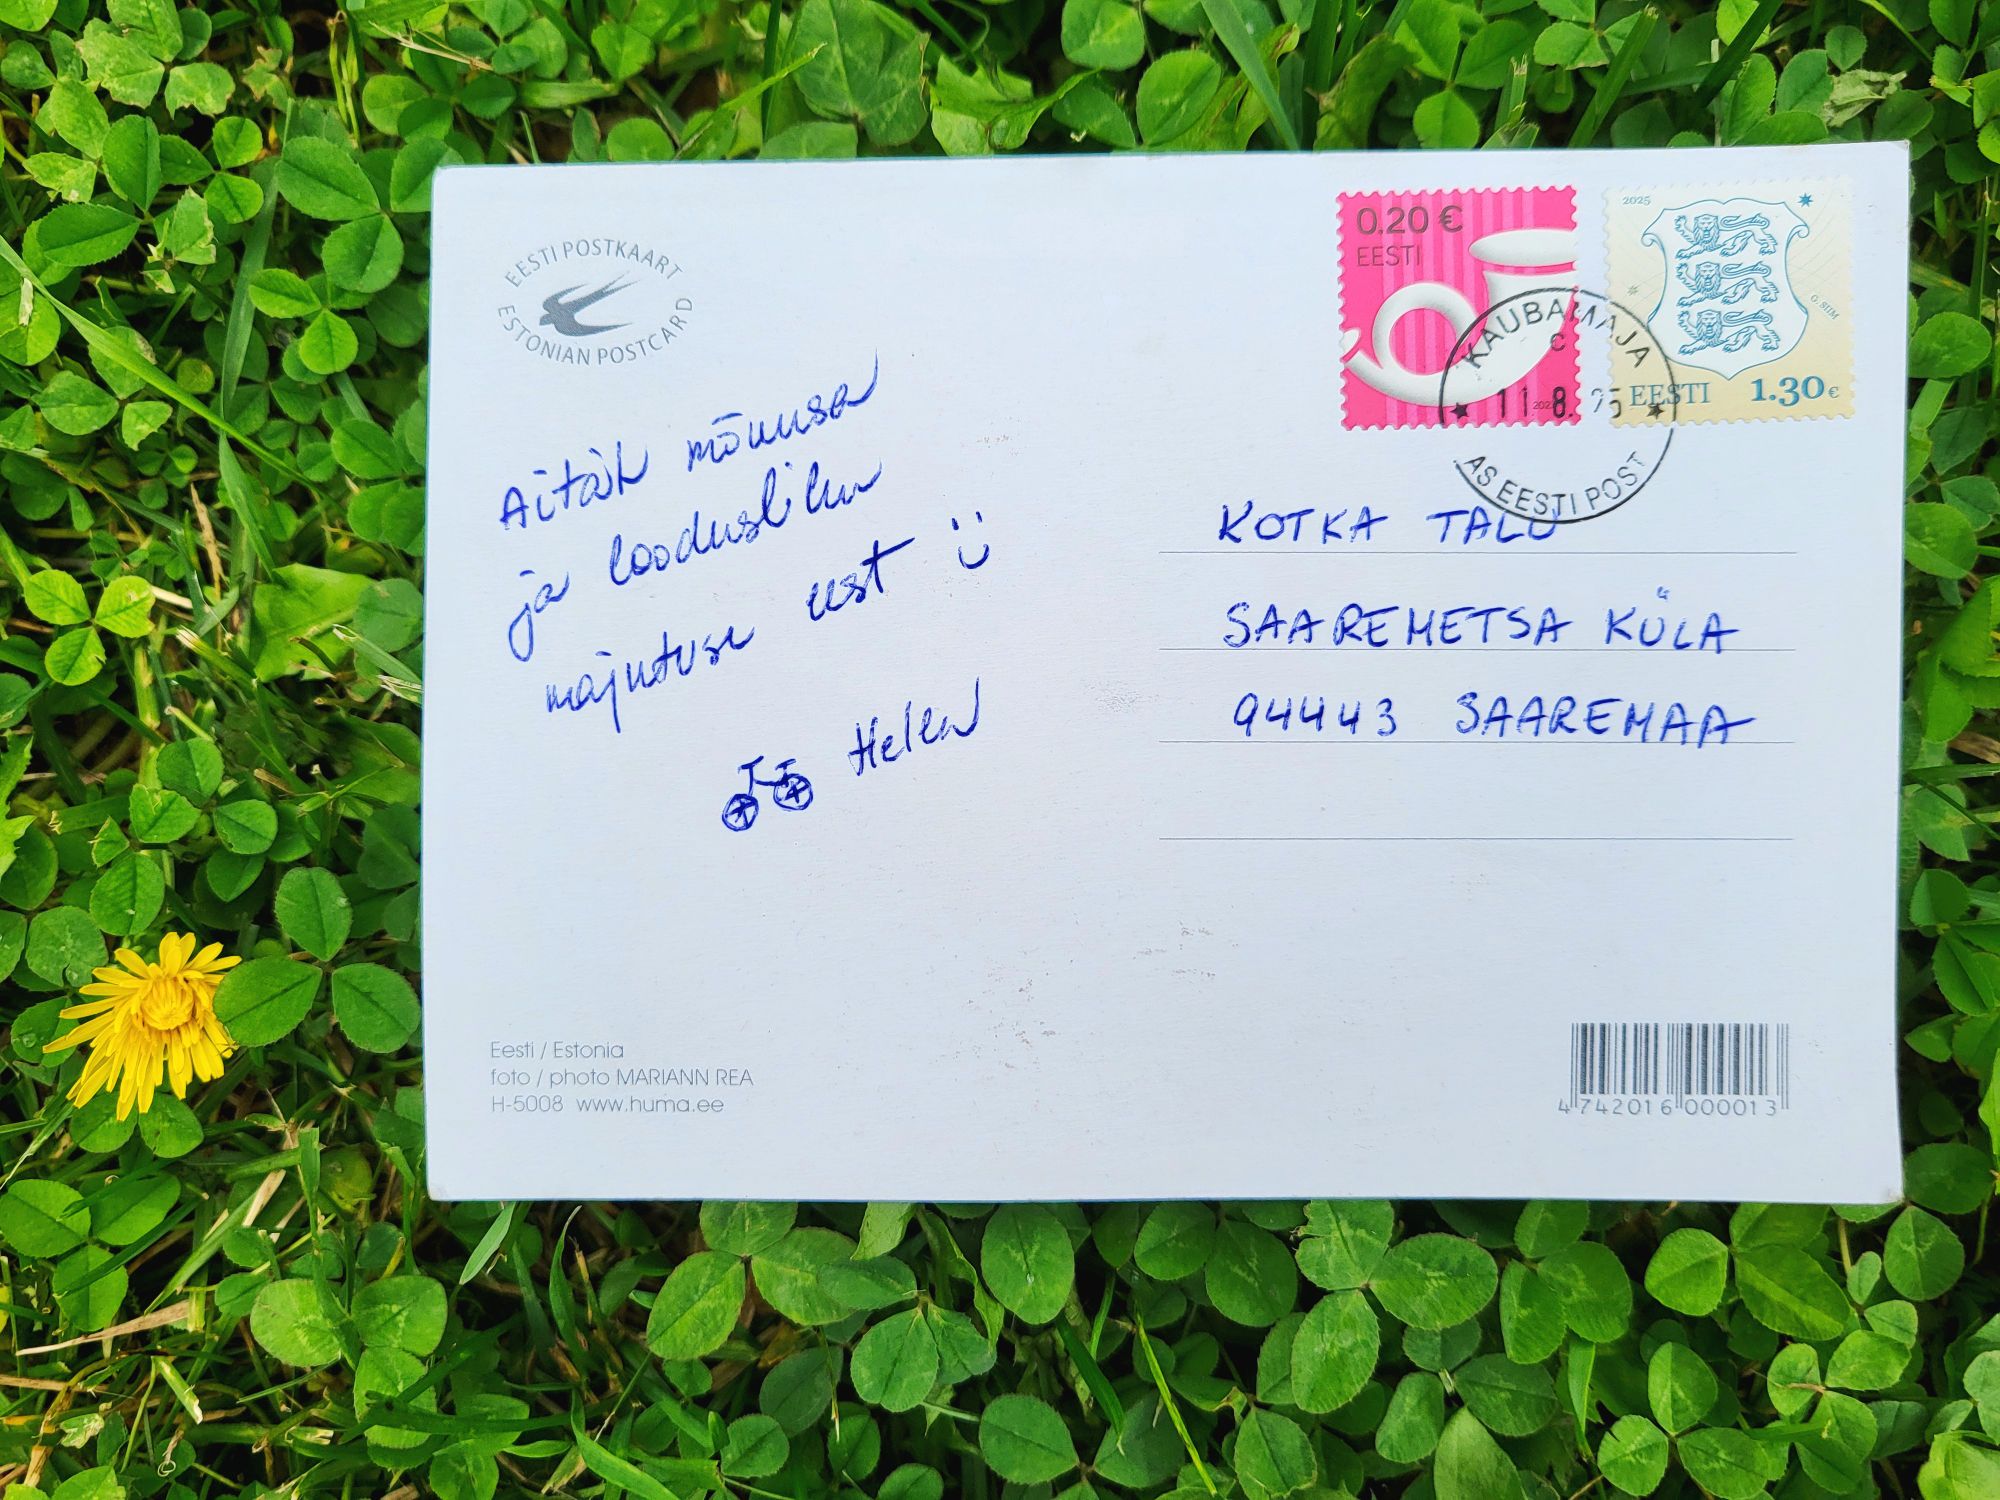 EESTI POSTKAART
ESTONIAN POSTCARD
0.20 €
EESTI
2025
G. SIIM
EESTI 1.30 €
KAUBAMAJA
C
11.8.25
AS EESTI POST
Aitäh mõnusa
ja loodusliku
majutuse eest
Helen
KOTKA TALU
SAAREMETSA KÜLA
94443 SAAREMAA
Eesti / Estonia
foto / photo MARIANN REA
H-5008 www.huma.ee
4 742016 000013